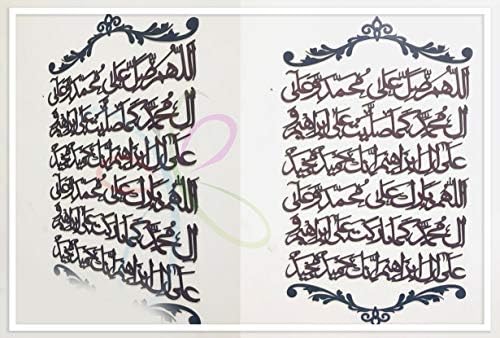 اللهم صل على محمد وعلى
ال محمد كما صليت على ابراهيم و
على ال ابراهيم انك حميد مجيد
اللهم بارك على محمد وعلى
ال محمد كما باركت على ابراهيم و
على ال ابراهيم انك حميد مجيد
اللهم صل على محمد وعلى
ال محمد كما صليت على ابراهيم و
على ال ابراهيم انك حميد مجيد
اللهم بارك على محمد وعلى
ال محمد كما باركت على ابراهيم و
على ال ابراهيم انك حميد مجيد